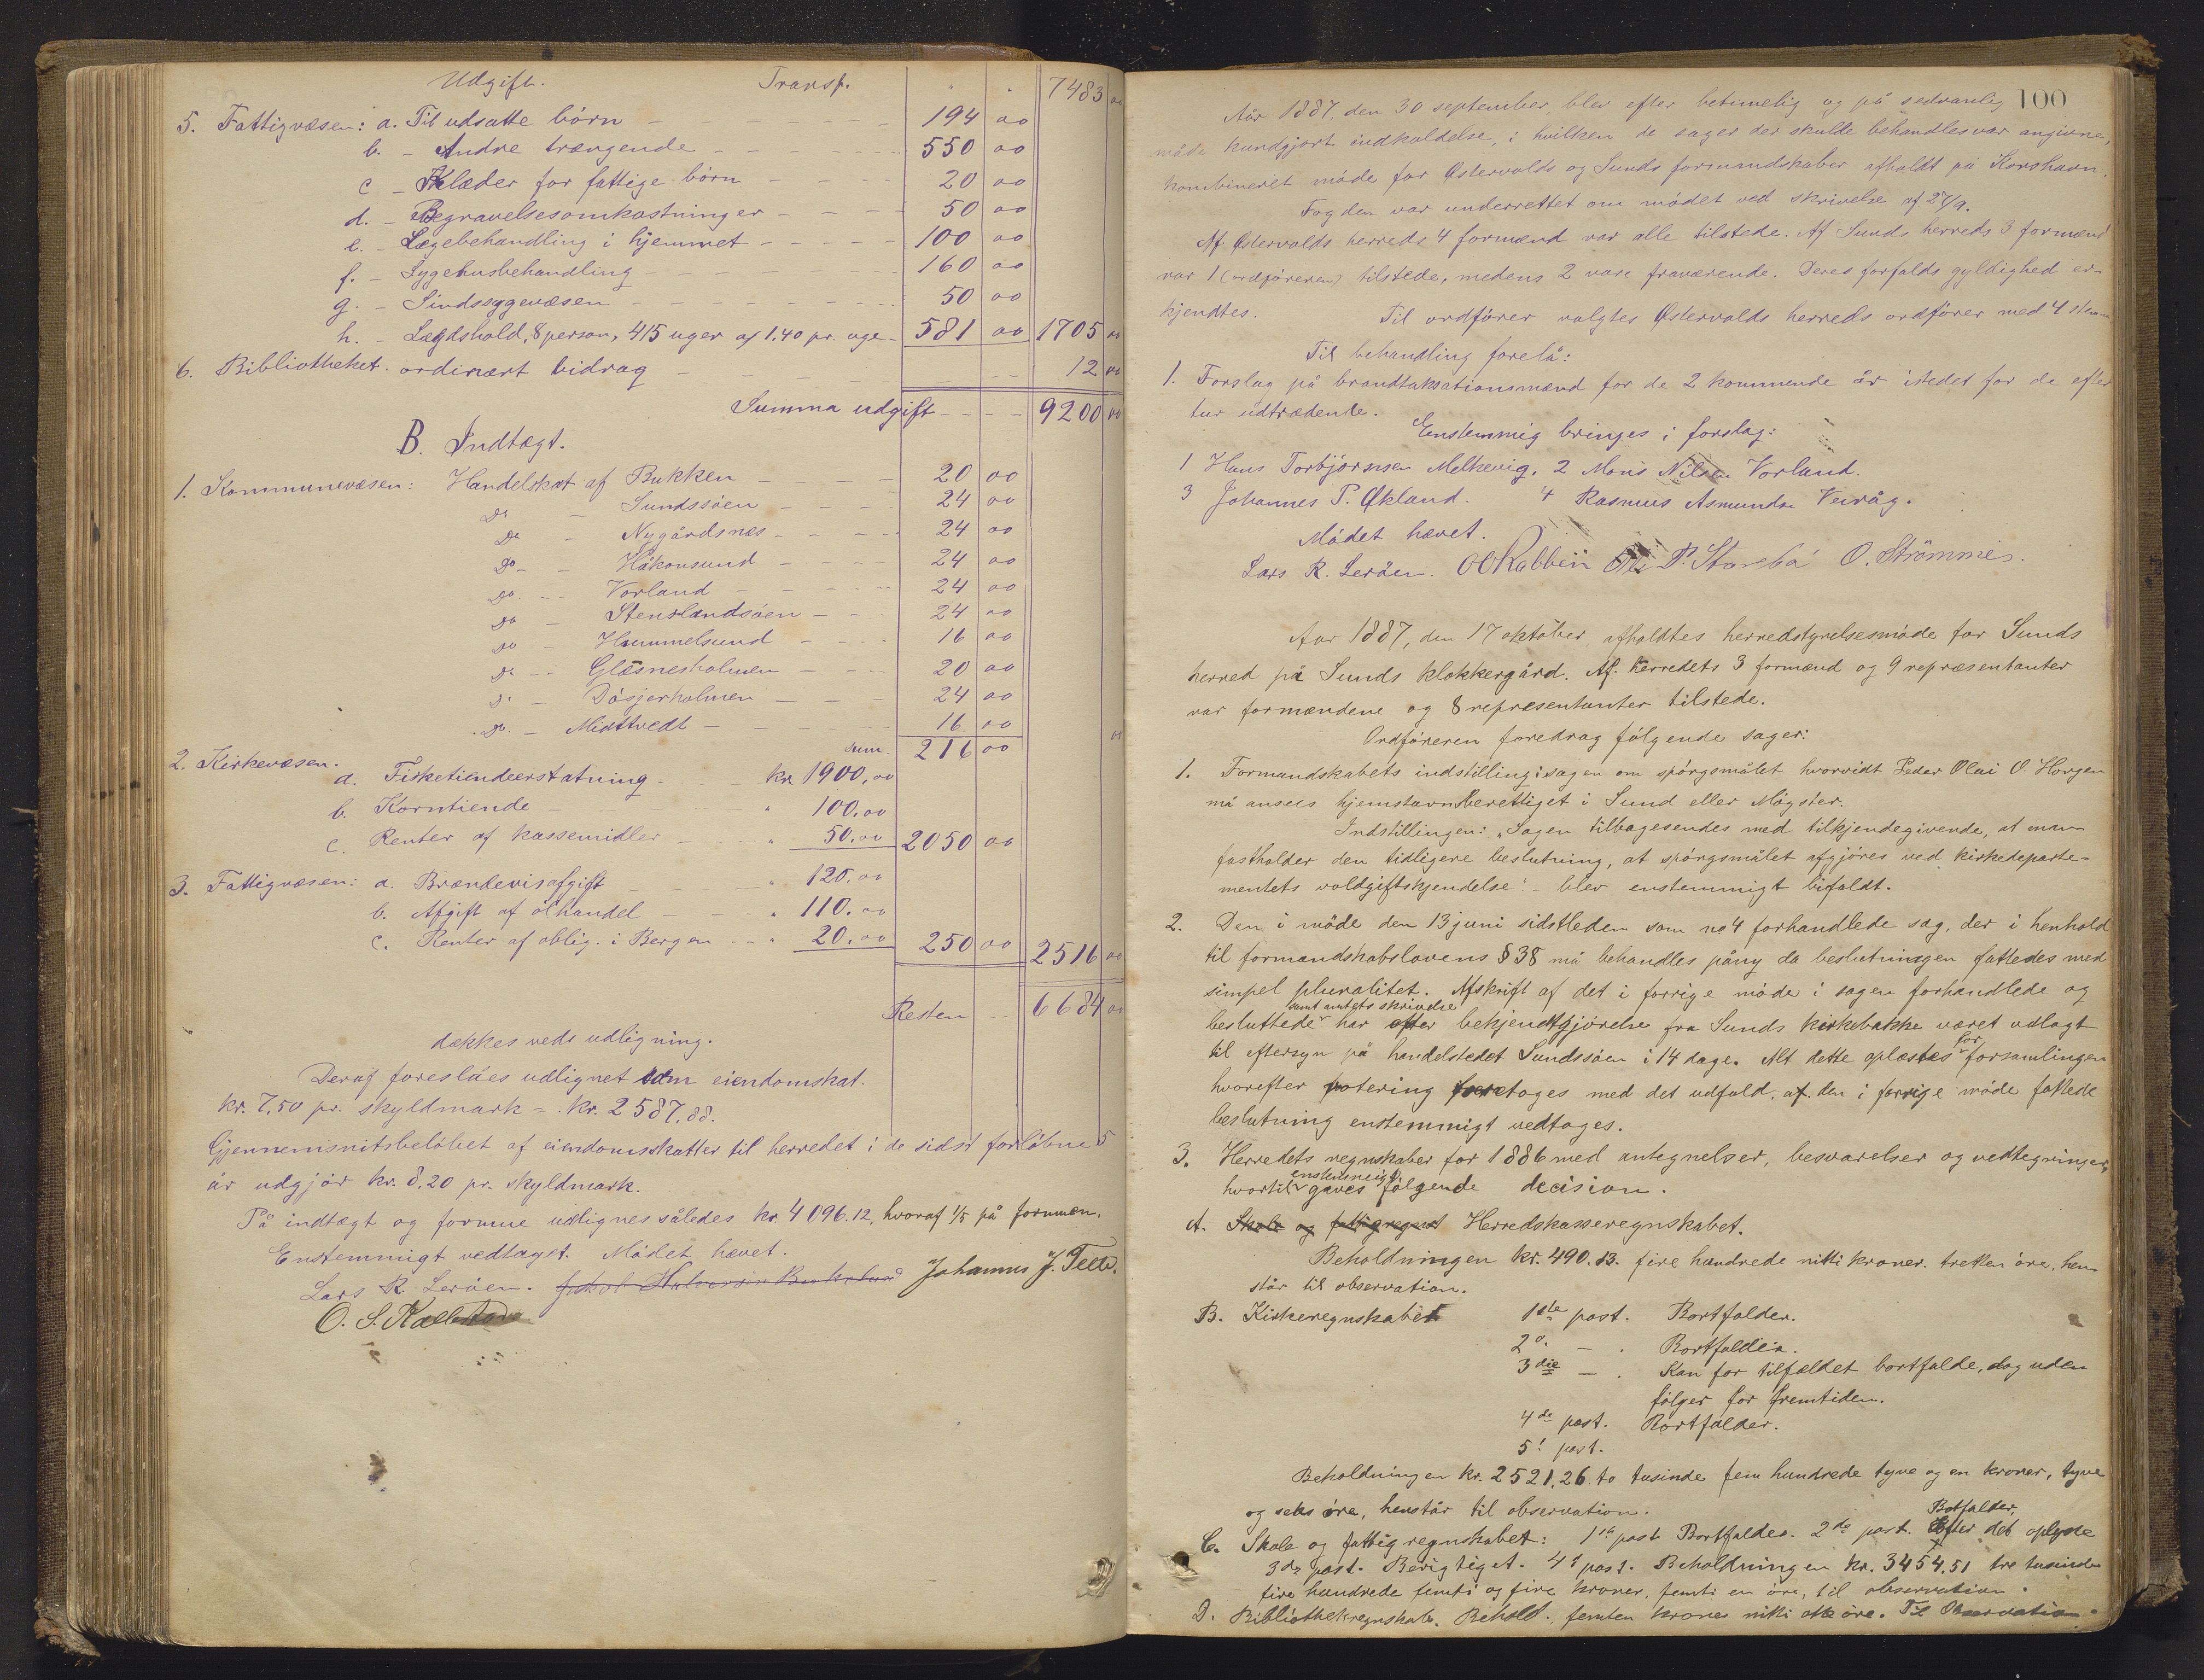 Udgift. Transp. 7483 00
5. Fattigvæsen: a. Til udsatte börn 194 00
b. - Andre trængende 550 00
c - Klæder for fattige börn 20 00
d. - Begravelsesomkostninger 50 00
e. - Lægebehandling i hjemmet 100 00
f. - Sygehusbehandling 160 00
g. - Sindssygevæsen 50 00
h. - Lægdshold, 8 person, 415 uger af 1.40 pr. uge 581 00 1705 00
6. Bibliotheket. ordinært bidrag 12 00
Summa udgift 9200 00
B. Indtægt.
1. Kommunevæsen: Handelskat af Bukken 20 00
Do - Sundsöen 24 00
Do - Nygårdsnes 24 00
Do - Håkonsund 24 00
Do. - Vorland 24 00
Do - Stenslandsöen 24 00
Do - Hummelsund 16 00
Do - Glesnesholmen 20 00
Do - Dösjerholmen 24 00
Do. - Midttvedt 16 00
sum. 216 00
2. Kirkevæsen.
a. Fisketiendeerstatning kr 1900,00
b. Korntiende " 100.00
c. Renter af kassemidler " 50.00 2050 00
3. Fattigvæsen: a. Brændevinsafgift " 120.00
b. Afgift af ölhandel " 110.00
c. Renter af oblig. i Bergen " 20.00 250 00 2516 00
Resten 6684 00
dækkes veds udligning.
Deraf foreslåes udlignet som eiendomskat.
kr. 7,50 pr. skyldmark = kr. 2587.88.
Gjennemsnitsbelöbet af eiendomsskatter til herredet i de sidst forlöbne 5
år udgjör kr. 8.20 pr. skyldmark.
På indtægt og formue udlignes således kr. 4096.12, hvoraf 1/5 på formuen.
Enstemmigt vedtaget. Mödet hævet.
Lars R. Leröen. Johannes J. Telle.
O. S. Kallestad
100
Aår 1887, den 30 september, blev efter betimelig og på sedvanlig
måde kundgjort indkaldelse, i hvilken de sager der skulde behandles var angivne,
kombineret möde for Østervolds og Sunds formandskaber afholdt på Korshavn.
Fogden var underrettet om mödet ved skrivelse af 27/9.
Af Østervolds herreds 4 formænd var alle tilstede. Af Sunds herreds 3 formænd
var 1 (ordföreren) tilstede, medens 2 vare fraværende. Deres forfalds gyldighed er-
kjendtes. Til ordförer valgtes Østervolds herreds ordförer med 4 stem
Til behandling forelå:
1. Forslag på brandtaksationsmænd for de 2 kommende år istedet for de efter
tur udtrædende.
Enstemmig bringes i forslag:
1 Hans Torbjörnsen Melkevig. 2 Mons Nilsen Vorland.
3 Johannes P. Økland. 4 Rasmus Asmundsen Veivåg.
Mödet hævet.
Lars R. Leröen. O O Rabben P. Storebö O. Strömmes.
Aar 1887, den 17 oktober, afholdtes herredstyrelsesmöde for Sunds
herred på Sunds klokkergård. Af herredets 3 formænd og 9 repræsentanter
var formændene og 8 representanter tilstede.
Ordföreren foredrag fölgende sager:
1. Formandskabets indstilling i sagen om spörgsmålet hvorvidt Peder Olai O. Horgen
må ansees hjemstavnsberettiget i Sund eller Mögster.
Indstillingen: "Sagen tilbagesendes med tilkjendegivende, at man
fastholder den tidligere beslutning, at spörgsmålet afgjöres ved kirkedeparte-
mentets voldgiftskjendelse" - blev enstemmigt bifaldt.
2. Den i möde den 13 juni sidstleden som no 4 forhandlede sag, der i henhold
til formandskabslovens § 38 må behandles påny da beslutningen fattedes med
simpel pluralitet. Afskrift af det i forrige möde i sagen forhandlede og
samt amtets skrivelse
besluttede har efter bekjendtgjörelse fra Sunds kirkebakke været udlagt
til eftersyn på handelstedet Sundsöen i 14 dage. Alt dette oplæstes for forsamlingen
hvorefter votering foretages med det udfald, at den i forrige möde fattede
beslutning enstemmigt vedtages.
3. Herredets regnskaber for 1886 med antegnelser, besvarelser og vedtegninger,
enstemmigt
hvortil gaves fölgende decision.
A. Skole og fattigregnst Herredskasseregnskabet.
Beholdningen kr. 490.13. fire hundrede nitti kroner. tretten öre, hen-
står til observation.
B. Kirkeregnskabet 1ste post. Bortfalder.
2o - . Bortfalder.
3die - . Kan for tilfældet bortfalde, dog uden
fölger for fremtiden.
4de post. Bortfalder.
5t post.
Beholdningen kr. 2521,26 to tusinde fem hundrede tyve og en kroner, tyve
og seks öre, henstår til observation.
Botfalder,
C. Skole og fattigregnskabet: 1ste post Bortfalder. 2de post. Efter det oplyste
3die post. Berigtiget. 4t post. Beholdningen kr. 3454.51 tre tusinde
fire hundrede femti og fire kroner, femti en öre, til observation.
D. Bibliothekregnskab. Behold. femten kroner nitti otte öre. Til Observation.